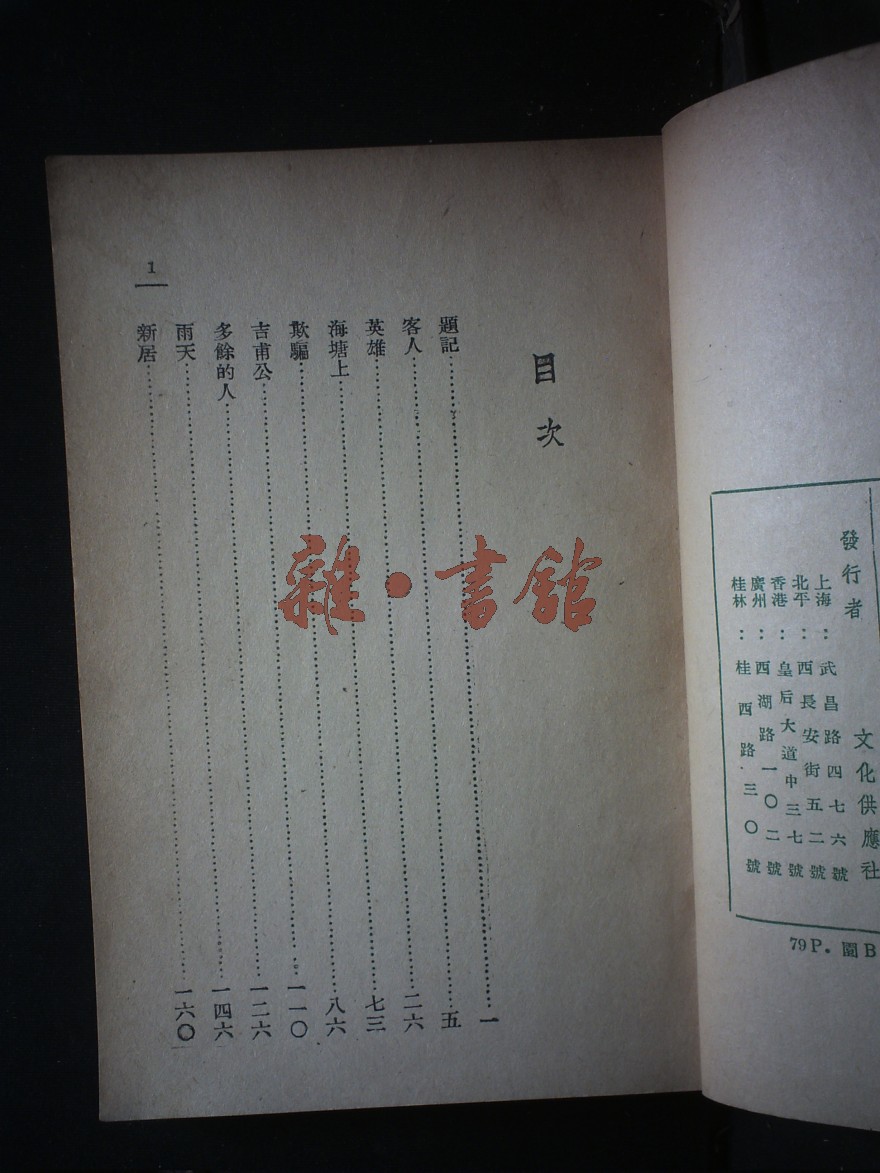 發行者 文化供應社
上海：武昌路四七六號
北平：西長安街五二號
香港：皇后大道中三七號
廣州：西湖路一〇二號
桂林：桂西路三〇號
79P. B
目次
題記……一
客人……五
英雄……二六
海塘上……七三
欺騙……八六
吉甫公……一一〇
多餘的人……一二六
雨天……一四六
新居……一六〇
1
雜·書館